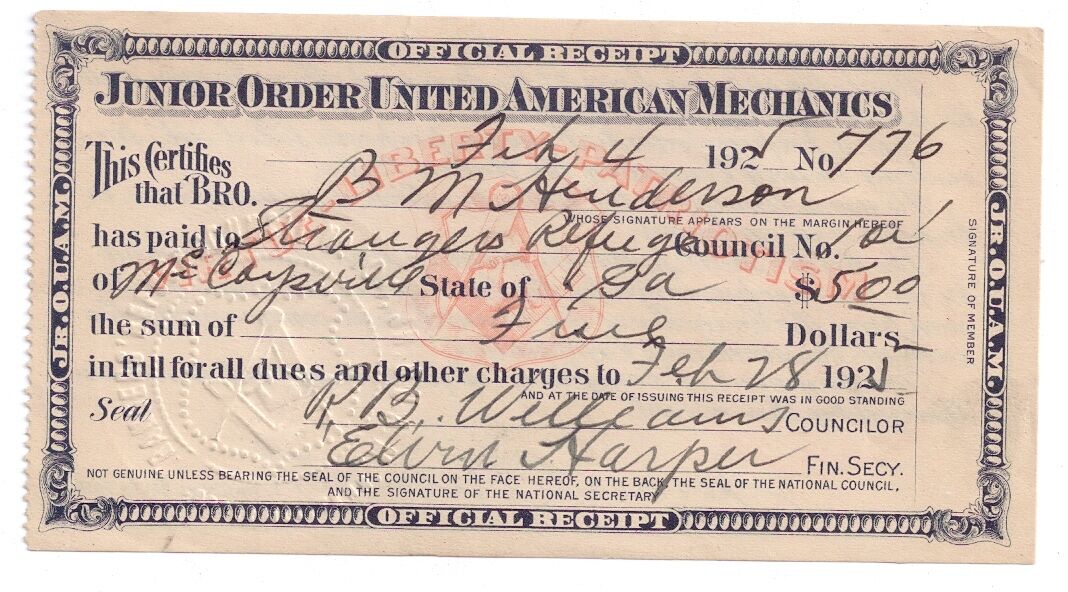 OFFICIAL RECEIPT
JUNIOR ORDER UNITED AMERICAN MECHANICS
Feb 4 1925 No 776
This Certifies that BRO. B M Henderson
WHOSE SIGNATURE APPEARS ON THE MARGIN HEREOF
has paid to Strangers Refuge Council No. 101
of McCaysville State of Ga $5.00
the sum of Five Dollars
in full for all dues and other charges to Feb 28 1925
AND AT THE DATE OF ISSUING THIS RECEIPT WAS IN GOOD STANDING
Seal R. B. Williams COUNCILOR
Harper FIN. SECY.
NOT GENUINE UNLESS BEARING THE SEAL OF THE COUNCIL ON THE FACE HEREOF, ON THE BACK, THE SEAL OF THE NATIONAL COUNCIL,
AND THE SIGNATURE OF THE NATIONAL SECRETARY
OFFICIAL RECEIPT
JR. O. U. A. M.
JR. O. U. A. M.
SIGNATURE OF MEMBER
LIBERTY-PATRIOTISM